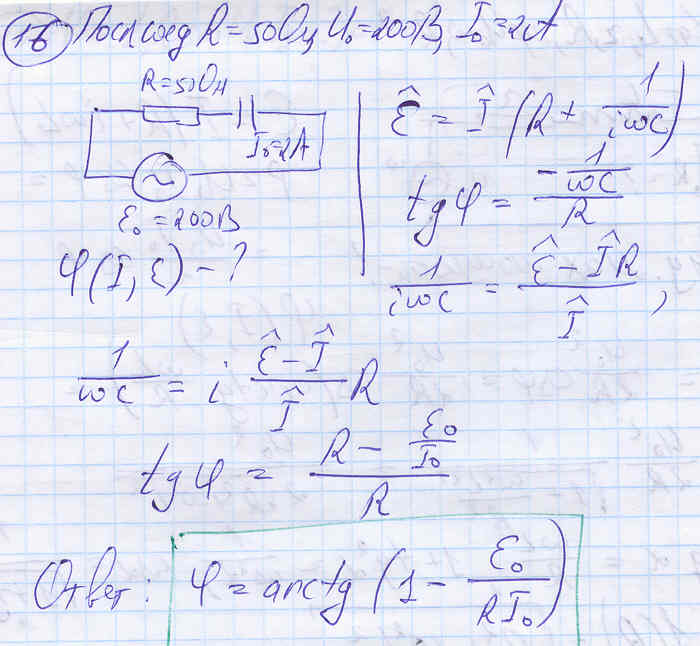 16 Посл соед R=50Ом, U₀=200В, I₀=2А
R=50Ом
I₀=2А
ℰ₀=200В
φ(I, ℰ) - ?
ℰ̂ = Î (R + 1/(iωc))
tgφ = (-1/(ωc))/R
1/(iωc) = (ℰ̂ - ÎR)/Î ,
1/(ωc) = i (ℰ̂ - Î)/Î R
tgφ = (R - ℰ₀/I₀)/R
Ответ: φ = arctg (1 - ℰ₀/(RI₀))